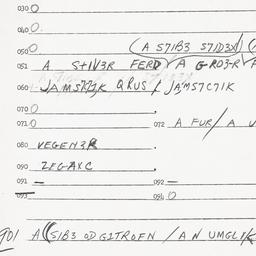 030 O
040 O
050 O (A S71B3 S71D3X)
051 A S+1V3R FERD / A GRD3-R
060 JAMS771K QRUS / JAMS7C71K
070 O
071 O 072 A FUR/A U
080 VEGENZR
090 ZEGAXC
091 — 092 —
093 094 O
901 A (S1B3 OD G1TROFN / A N UMGL1K